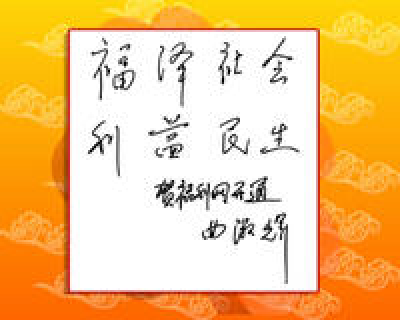 福泽社会
利益民生
贺福利网开通
曲淑辉